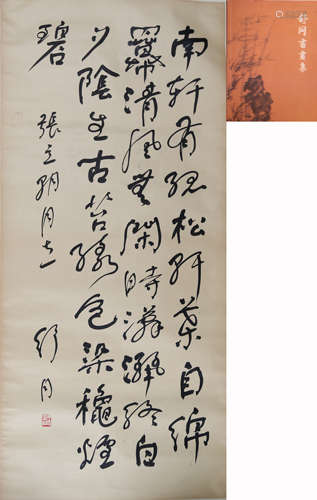 南軒有孤松軒葉自綿
冪清風無閑時瀟灑終日
夕陰生古苔綠色染穐煙
碧
張立明同志
舒同
舒同書畫集